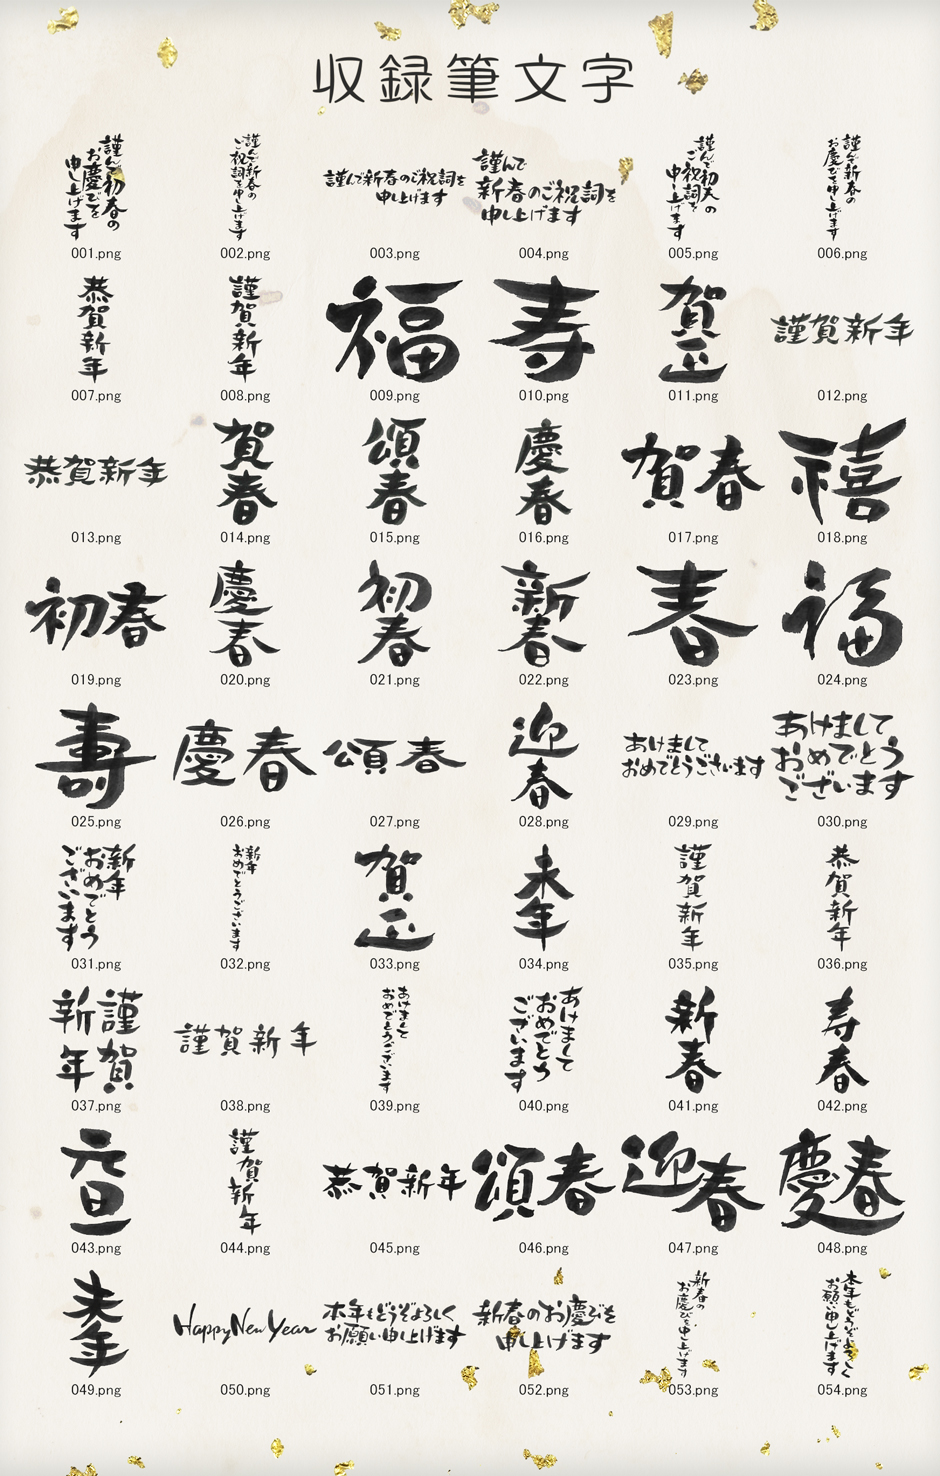 収録筆文字
謹んで初春の
お慶びを
申し上げます
001.png
謹んで新春の
ご祝詞を申し上げます
002.png
謹んで新春のご祝詞を
申し上げます
003.png
謹んで
新春のご祝詞を
申し上げます
004.png
謹んで初春の
ご祝詞を
申し上げます
005.png
謹んで新春の
お慶びを申し上げます
006.png
恭賀新年
007.png
謹賀新年
008.png
福
009.png
寿
010.png
賀正
011.png
謹賀新年
012.png
恭賀新年
013.png
賀春
014.png
頌春
015.png
慶春
016.png
賀春
017.png
禧
018.png
初春
019.png
慶春
020.png
初春
021.png
新春
022.png
春
023.png
福
024.png
壽
025.png
慶春
026.png
頌春
027.png
迎春
028.png
あけまして
おめでとうございます
029.png
あけまして
おめでとう
ございます
030.png
新年
おめでとう
ございます
031.png
新年
おめでとうございます
032.png
賀正
033.png
未年
034.png
謹賀新年
035.png
恭賀新年
036.png
謹賀
新年
037.png
謹賀新年
038.png
あけまして
おめでとうございます
039.png
あけまして
おめでとう
ございます
040.png
新春
041.png
寿春
042.png
元旦
043.png
謹賀
新年
044.png
恭賀新年
045.png
頌春
046.png
迎春
047.png
慶春
048.png
未年
049.png
Happy New Year
050.png
本年もどうぞよろしく
お願い申し上げます
051.png
新春のお慶びを
申し上げます
052.png
新春の
お慶びを申し上げます
053.png
本年もどうぞよろしく
お願い申し上げます
054.png